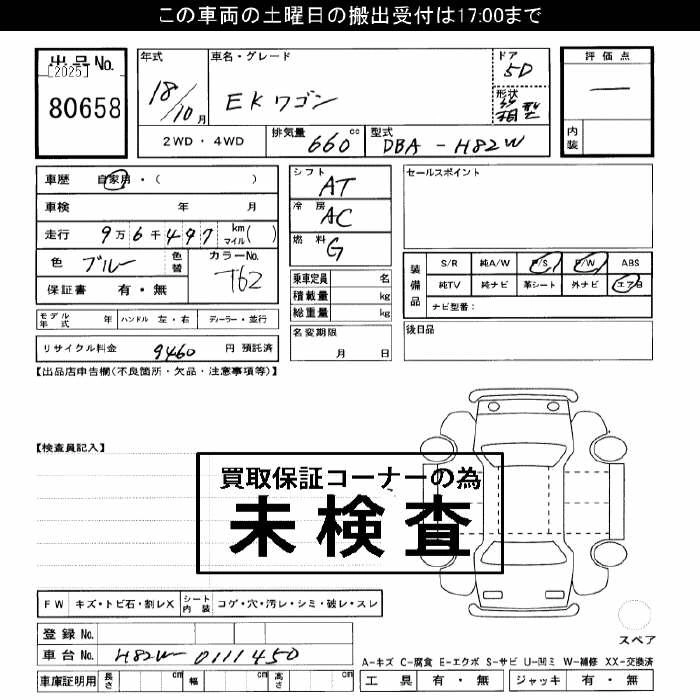 この車両の土曜日の搬出受付は17:00まで
出品No.
[2025]
80658
年式
18/10月
車名・グレード
EKワゴン
ドア
5D
形状
箱型
2WD・4WD
排気量
660 cc
型式
DBA-H82W
評価点
—
内装
車歴 自家用・( )
車検 年 月
走行 9万6千497 km マイル( )
色 ブルー 色替
カラーNo. T62
保証書 有・無
モデル年式 年 ハンドル 左・右 ディーラー・並行
リサイクル料金 9460 円 預託済
シフト AT
冷房 AC
燃料 G
乗車定員 名
積載量 kg
総重量 kg
名変期限 月 日
セールスポイント
装備品
S/R 純A/W P/S P/W ABS
純TV 純ナビ 革シート 外ナビ エアB
ナビ型番:
後日品
【出品店申告欄(不良箇所・欠品・注意事項等)】
【検査員記入】
買取保証コーナーの為
未検査
FW キズ・トビ石・割レX シート内装 コゲ・穴・汚レ・シミ・破レ・スレ
登録No.
車台No. H82W-0111450
車庫証明用 長さ cm 幅 cm 高さ cm
スペア
A-キズ C-腐食 E-エクボ S-サビ U-凹ミ W-補修 XX-交換済
工具 有・無 ジャッキ 有・無